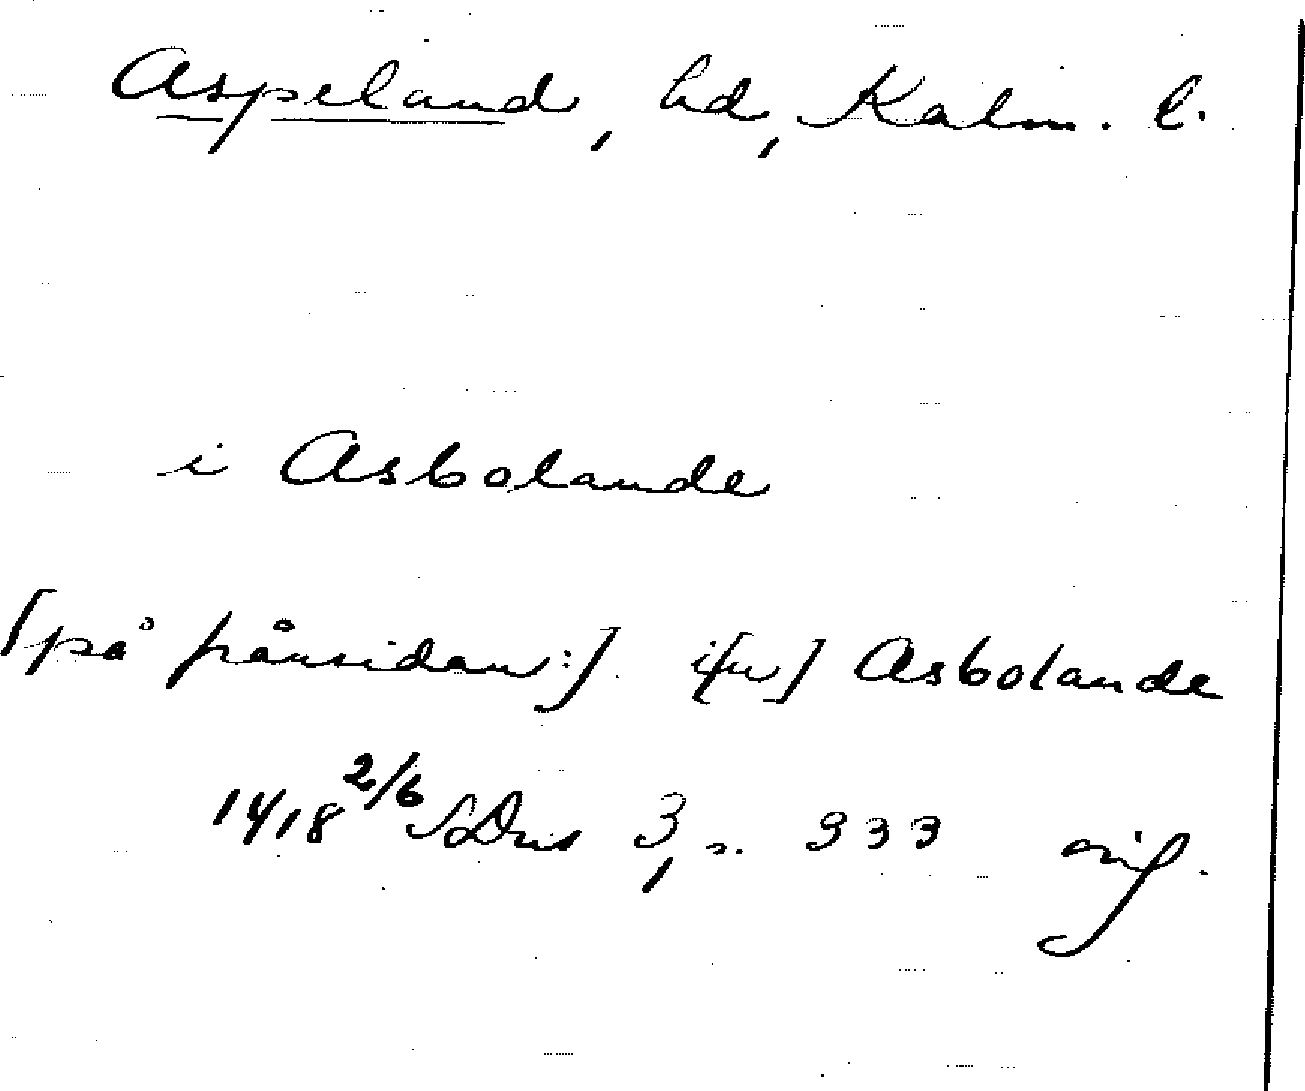 Aspeland, hd, Kalm. l.
i Asbolande
[på frånsidan:]. i[w] Asbolande
1418 2/6 SDns 3, s. 333 orig.